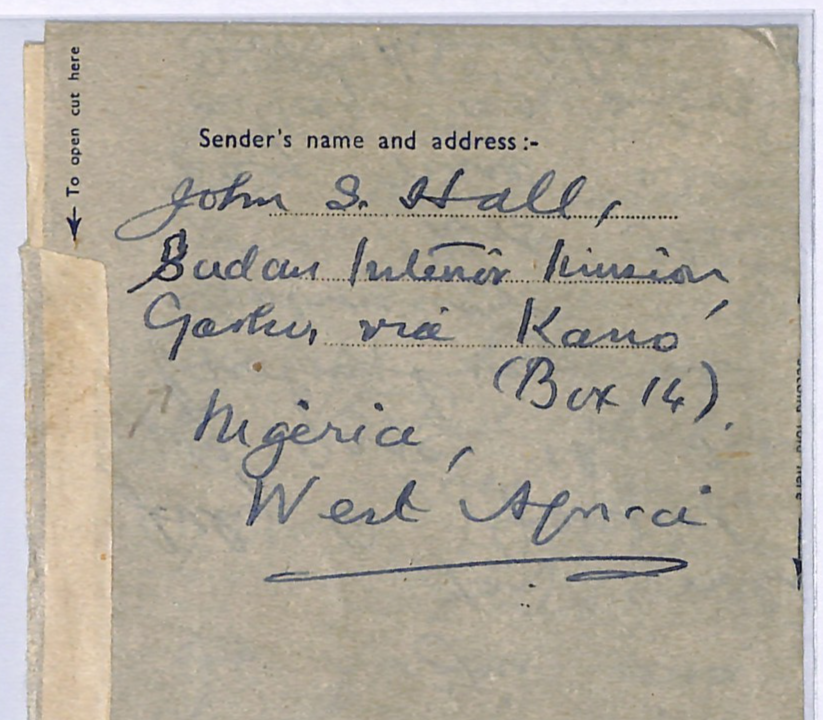 To open cut here
Sender's name and address:-
John S. Hall,
Sudan Interior Mission,
Gashu, via Kano
(Box 14).
Nigeria,
West Africa